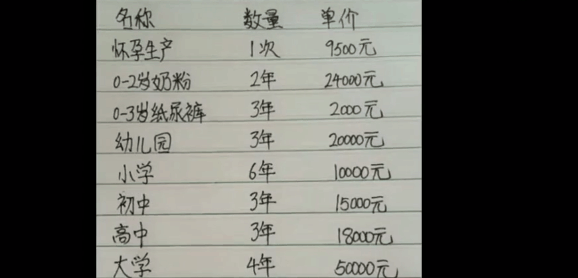 名称 数量 单价
怀孕生产 1次 9500元
0-2岁奶粉 2年 24000元
0-3岁纸尿裤 3年 2000元
幼儿园 3年 20000元
小学 6年 10000元
初中 3年 15000元
高中 3年 18000元
大学 4年 50000元